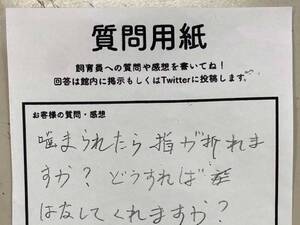 質問用紙
飼育員への質問や感想を書いてね！
回答は館内に掲示もしくはTwitterに投稿します。
お客様の質問・感想
噛まれたら指が折れま
すか？ どうすれば
はなしてくれますか？